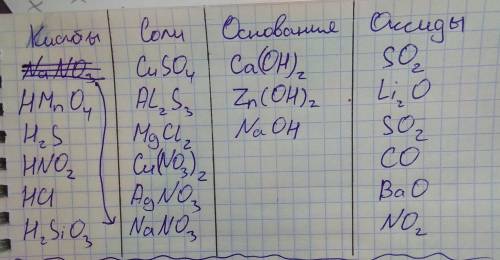 Кислоты Соли Основания Оксиды
NaNO₃ CuSO₄ Ca(OH)₂ SO₂
HMnO₄ AL₂S₃ Zn(OH)₂ Li₂O
H₂S MgCl₂ NaOH SO₂
HNO₂ Cu(NO₃)₂ CO
HCl AgNO₃ BaO
H₂SiO₃ NaNO₃ NO₂